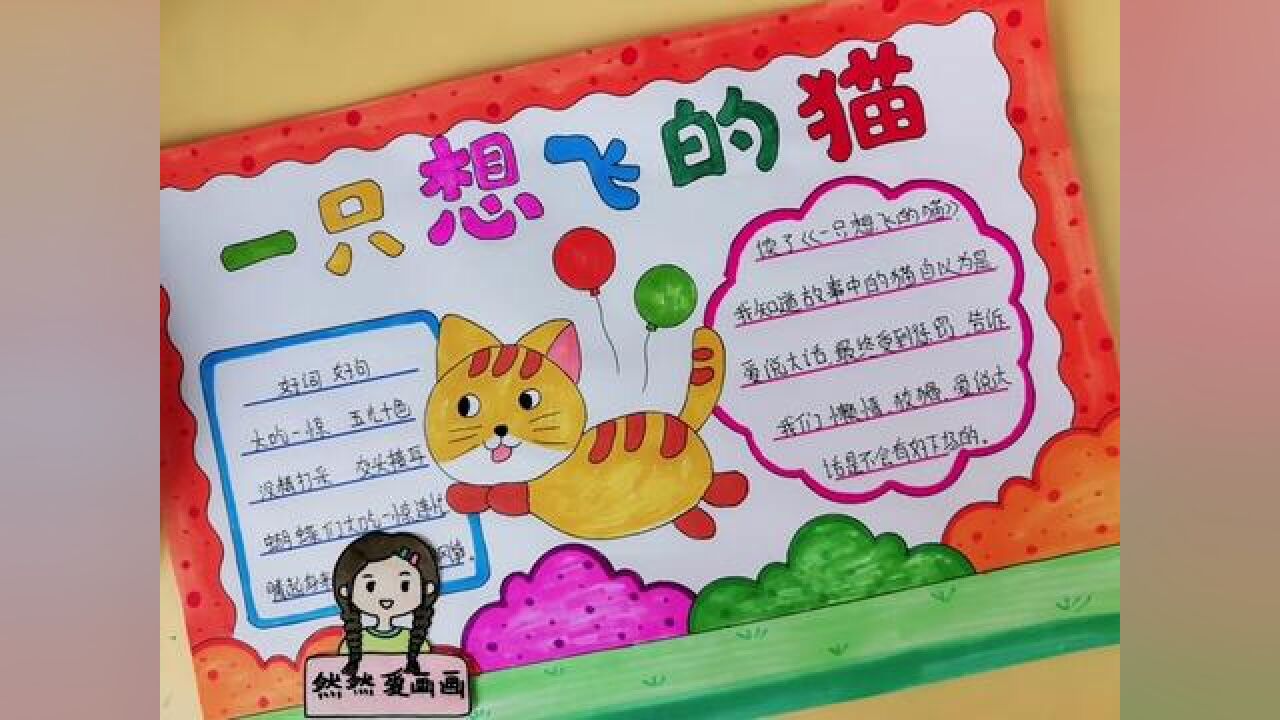 一只想飞的猫
好词 好句
大吃一惊 五光十色
没精打采 交头接耳
蝴蝶们大吃一惊连忙
读了《一只想飞的猫》
我知道故事中的猫自以为是
爱说大话 最终受到惩罚 告诉
我们 懒惰、骄傲、爱说大
话是不会有好下场的。
然然爱画画